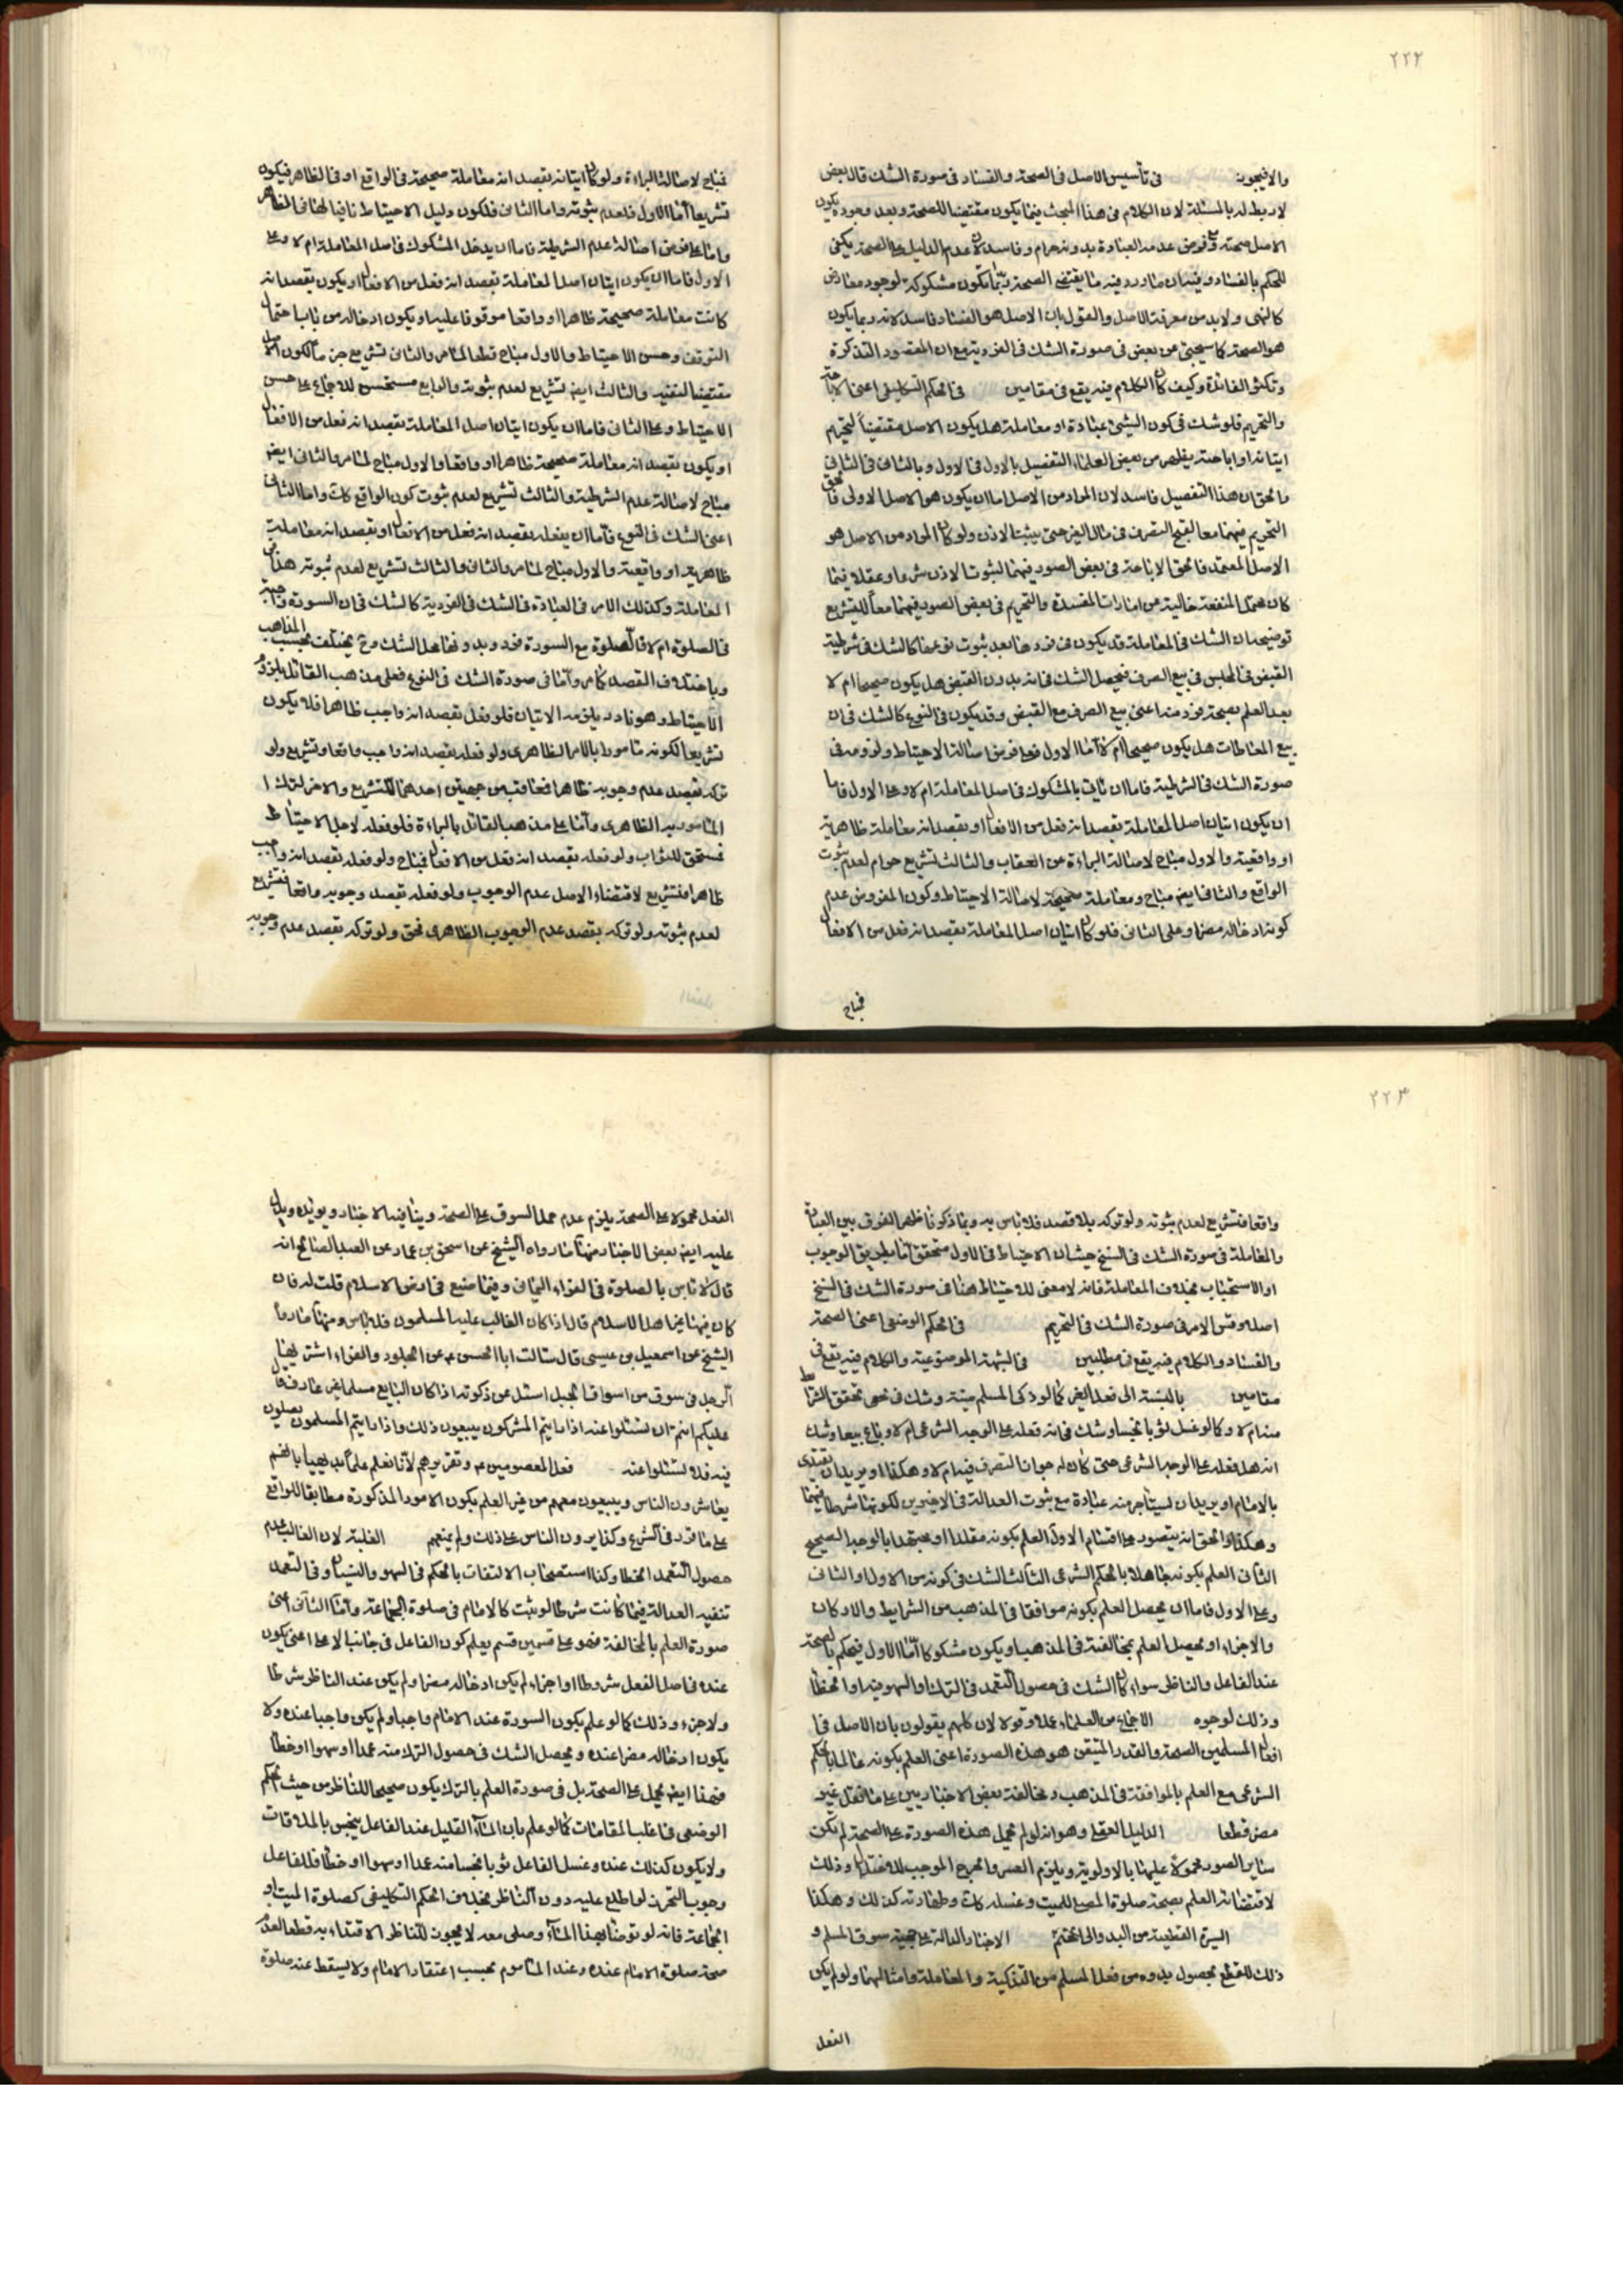 ۲۲۲
والا فيجوز في تأسيس الاصل في الصحة والفساد في صورة الشك قال بعض
لا ربط له بالمسئلة لان الكلام في هذا المبحث فيما يكون مقتضيا للصحة وبعد وجوده يكون
الاصل صحته وفرض عدمه العبادة بدونه حرام وفاسد لان عدم الدليل على الصحة يكفي
للحكم بالفساد وفيه ان ما ورد فيه ما يقتضي الصحة ربما تكون مشكوكة لوجود معارض
كالنهى ولا بد من معرفة الاصل والقول بان الاصل هو الفساد فاسد لانه ربما يكون
هو الصحة كما سيجئ عن بعض في صورة الشك في الفردية مع ان المقصود التذكرة
وتكثر الفائدة وكيف كان الكلام فيه يقع في مقامين في الحكم التكليفي اعنى الاباحة
والتحريم فلو شك في كون الشيئ عبادة او معاملة هل يكون الاصل مقتضياً لتحريم
اتيانه او اباحته يظهر من بعض العلماء التفصيل بالاول في الاول وبالثاني في الثاني
والحق ان هذا التفصيل فاسد لان المراد من الاصل اما ان يكون هو الاصل الاولى فالحق
التحريم فيهما معا لقبح التصرف في مال الغير حتى يثبت الاذن ولو كان المراد من الاصل هو
الاصل المعتمد فالحق الاباحة في بعض الصور فيهما لثبوت الاذن شرعا وعقلا فيما
كان محتمل المنفعة خالية عن امارات المفسدة والتحريم في بعض الصور فيهما معاً للتشريع
توضيحه ان الشك في المعاملة قد يكون في فردها بعد ثبوت نوعها كالشك في شرطية
القبض في المجلس في بيع الصرف فيحصل الشك في انه بدون القبض هل يكون صحيحا ام لا
بعد العلم بصحة فرد منه اعنى بيع الصرف مع القبض وقد يكون في النوع كالشك في ان
بيع المعاطات هل يكون صحيحا ام لا اما الاول فعلى فرض اصالة الاحتياط ولزومه في
صورة الشك في الشرطية فاما ان ياتي بالمشكوك في اصل المعاملة ام لا وعلى الاول فاما
ان يكون اتيان اصل المعاملة بقصد انه فعل من الافعال او بقصد انه معاملة ظاهرية
او واقعية والاول مباح لاصالة البراءة عن العقاب والثالث تشريع حرام لعدم ثبوت
الواقع والثاني ايضا مباح ومعاملة صحيحة لاصالة الاحتياط وكون المفروض عدم
كونه ادخاله مضرا وعلى الثاني فلو كان اتيان اصل المعاملة بقصد انه فعل من الافعال
فمباح
فمباح لاصالة البراءة ولو كان اتيانه بقصد انه معاملة صحيحة في الواقع او في الظاهر فيكون
تشريعا اما الاول فلعدم ثبوته واما الثاني فلكون دليل الاحتياط نافيا لها في الظاهر
واما على فرض اصالة عدم الشرطية فاما ان يدخل المشكوك في اصل المعاملة ام لا وعلى
الاول فاما ان يكون اتيان اصل المعاملة بقصد انه فعل من الافعال او يكون بقصد انه
كانت معاملة صحيحة ظاهرا او واقعا موقوفا عليه او يكون ادخاله من باب احتمال
التوقف وحسن الاحتياط والاول مباح قطعا لما مر والثاني تشريع جزما لكون الاصل
مقتضيا لنفيه والثالث ايضا تشريع لعدم ثبوته والرابع مستحسن للاجماع على حسن
الاحتياط وعلى الثاني فاما ان يكون اتيان اصل المعاملة بقصد انه فعل من الافعال
او يكون بقصد انه معاملة صحيحة ظاهرا او واقعا والاول مباح لما مر والثاني ايضا
مباح لاصالة عدم الشرطية والثالث تشريع لعدم ثبوت كون الواقع كك واما الثاني
اعنى الشك في النوع فاما ان يفعله بقصد انه فعل من الافعال او بقصد انه معاملة
ظاهرية او واقعية والاول مباح لما مر والثاني والثالث تشريع لعدم ثبوته هذا في
المعاملة وكذلك الامر في العبادة في الشك في الفردية كالشك في ان السورة واجبة
في الصلوة ام لا فالصلوة مع السورة فرد وبدونها محل الشك وح يختلف بحسب المذاهب
وباختلاف القصد كما مر واما في صورة الشك في النوع فعلى مذهب القائل بلزوم
الاحتياط وهو نادر يلزمه الاتيان فلو فعل بقصد انه واجب ظاهرا فلا يكون
تشريعا لكونه مامورا بالامر الظاهرى ولو فعله بقصد انه واجب واقعا وتشريع ولو
تركه بقصد عدم وجوبه ظاهرا فمعاقب من جهتين احدهما للتشريع والاخر لترك
المامور به الظاهرى واما على مذهب القائل بالبراءة فلو فعله لاجل الاحتياط
فمستحق للثواب ولو فعله بقصد انه فعل من الافعال فمباح ولو فعله بقصد انه واجب
ظاهرا فتشريع لاقتضاء الاصل عدم الوجوب ولو فعله بقصد وجوبه واقعا فتشريع
لعدم ثبوته ولو تركه بقصد عدم الوجوب الظاهرى فحق ولو تركه بقصد عدم وجوبه
۲۲۳
واقعا فتشريع لعدم ثبوته ولو تركه بلا قصد فلا باس به وبما ذكرنا ظهر الفرق بين العبادة
والمعاملة في صورة الشك في النسخ حيث ان الاحتياط في الاول متحقق اما بطريق الوجوب
او الاستحباب بخلاف المعاملة فانه لا معنى للاحتياط هنا في صورة الشك في النسخ
اصلا وقس الامر في صورة الشك في التحريم في الحكم الوضعى اعنى الصحة
والفساد والكلام فيه يقع في مطلبين في الشبهة الموضوعية والكلام فيه يقع في
مقامين بالنسبة الى فعل الغير كما لو ذكى المسلم ميتة وشك في تحقق الشرائط
منه ام لا وكما لو غسل ثوبا نجسا وشك في انه فعله على الوجه الشرعى ام لا وباع بيعا وشك
انه هل فعله على الوجه الشرعى حتى كان له جواز التصرف فيه ام لا وهكذا او يريد ان يقتدى
بالامام او يريد ان يستأجر منه عبادة مع ثبوت العدالة في الاخيرين لكونها شرطا فيهما
وهكذا والحق انه يتصور على اقسام الاول العلم بكونه مقلدا او مجتهدا بالوجه الصحيح
الثاني العلم بكونه جاهلا بالحكم الشرعى الثالث الشك في كونه من الاول او الثاني
وعلى الاول فاما ان يحصل العلم بكونه موافقا في المذهب من الشرايط والاركان
والاجزاء او يحصل العلم بمخالفته في المذهب او يكون مشكوكا اما الاول فيحكم بالصحة
عند الفاعل والناظر سواء كان الشك في حصول التعمد في الترك او السهو فيه او الخطأ
وذلك لوجوه الاجماع من العلماء عملا وقولا لان كلهم يقولون بان الاصل في
افعال المسلمين الصحة والقدر المتيقن هو هذه الصورة اعنى العلم بكونه عالما بالحكم
الشرعى مع العلم بالموافقة في المذهب ومخالفة بعض الاخباريين على ما نقل غير
مضر قطعا الدليل العقلى وهو انه لو لم يحمل هذه الصورة على الصحة لم يكن
ساير الصور محمولة عليها بالاولوية ويلزم العسر والحرج الموجب للاختلال وذلك
لاقتضائه العلم بصحة صلوة المصلى للميت وغسله كك وطهارته كذلك وهكذا
السيرة القطعية من البدو الى الختم الاخبار الدالة على حجية سوق المسلم و
ذلك للقطع بحصول يده من فعل المسلم من التذكية والمعاملة وامثالهما ولو لم يكن
الفعل
الفعل محمولا على الصحة يلزم عدم حمل السوق على الصحة وينافيه الاخبار ويؤيده ويدل
عليه ايضا بعض الاخبار منها ما رواه الشيخ عن اسحق بن عمار عن العبد الصالح انه
قال لا باس بالصلوة في الفراء اليماني وفيما صنع في ارض الاسلام قلت له فان
كان فيها غير اهل الاسلام قال اذا كان الغالب عليه المسلمون فلا باس ومنها ما رواه
الشيخ عن اسمعيل بن عيسى قال سالت ابا الحسن ع عن الجلود والفراء اشتريها
الرجل في سوق من اسواق الجبل اسئل عن ذكوته اذا كان البايع مسلما غير عارف قال
عليكم انتم ان تسئلوا عنه اذا رايتم المشركون يبيعون ذلك واذا رايتم المسلمون يصلون
فيه فلا تسئلوا عنه فعل المعصومين ع وتقريرهم لانا نعلم علما بديهيا بانهم
يعاشرون الناس ويبيعون معهم من غير العلم بكون الامور المذكورة مطابقا للواقع
على ما قرر في الشرع وكذا يرون الناس على ذلك ولم يمنعهم الغلبة لان الغالب عدم
حصول التعمد الخطا وكذا استصحاب الالتفات بالحكم في السهو والنسيان وفي التعمد
تنفيه العدالة فيما كانت شرطا لو ثبت كالامام في صلوة الجماعة واما الثاني اعنى
صورة العلم بالمخالفة فهو على قسمين قسم يعلم كون الفاعل في جانب الاعلى اعنى يكون
عنده في اصل الفعل شروطا او اجزاء لم يكن ادخاله مضرا ولم يكن عند الناظر شرطا
ولا جزء وذلك كما لو علم بكون السورة عند الامام واجبا ولم يكن واجبا عنده ولا
يكون ادخاله مضرا عنده ويحصل الشك في حصول الترك منه عمدا او سهوا او خطأ
فهذا ايضا يحمل على الصحة بل في صورة العلم بالترك يكون صحيحا للناظر من حيث الحكم
الوضعى في اغلب المقامات كما لو علم بان الماء القليل عند الفاعل ينجس بالملاقات
ولا يكون كذلك عنده وغسل الفاعل ثوبا نجسا منه عمدا او سهوا او خطأ فللفاعل
وجوب التحرز لو اطلع عليه دون الناظر بخلاف الحكم التكليفى كصلوة الميت او
الجماعة فانه لو توضا بهذا الماء وصلى معه لا يجوز للناظر الاقتداء به قطعا لعدم
صحة صلوة الامام عنده وعند الماموم بحسب اعتقاد الامام ولا يسقط عنه صلوة